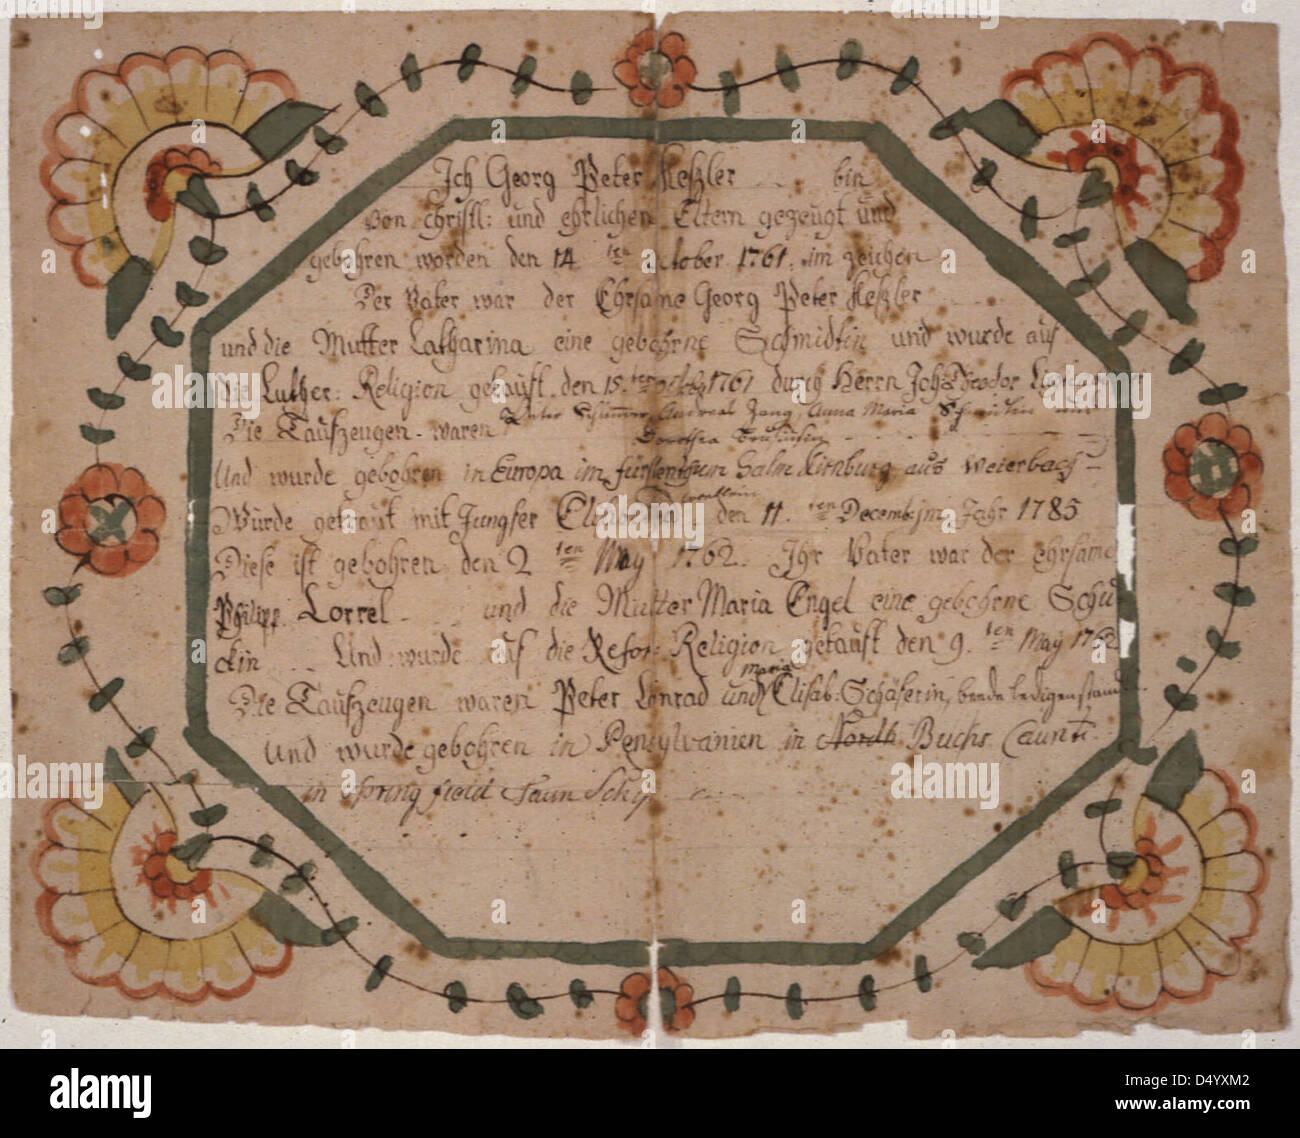 Ich Georg Peter Keßler bin
von christl: und ehrlichen Eltern gezeugt und
gebohren worden den 14 ten october 1761. im zeichen
Der Vater war der Ehrsame Georg Peter Keßler
und die Mutter Catharina eine gebohrne Schmidtin und wurde auf
die Luther: Religion getauft. den 15. ten 1761 durch Herrn Joh Theodor
Die Taufzeugen waren Peter Andreas Anna Maria und
Dorothea
Und wurde gebohren in Europa im fürstenthum Salm Kirnburg aus Weierbach
Wurde getraut mit Jungfer den 11. ten Decemb: im Jahr 1785
Diese ist gebohren den 2 ten May 1762. Ihr Vater war der ehrsame
Philipp Correl und die Mutter Maria Engel eine gebohrne Schu
ckin Und wurde auf die Refor: Religion getauft den 9. ten May 1762
Maria
Die Taufzeugen waren Peter Conrad und Elisab: Schäferin, beede ledigen stand
und wurde gebohren in Pensylvanien in North Buchs Caunti
in Spring field Taun Schip
a
alamy
Image ID: D4YXM2
www.alamy.com